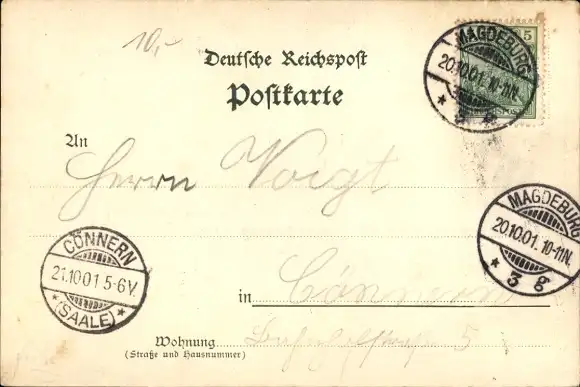 10,-
5
Deutsche Reichspost
Postkarte
MAGDEBURG
20.10.01. 10-11N.
An
Herrn Voigt
MAGDEBURG
20.10.01. 10-11N.
* 3 g
CÖNNERN
21.10.01 5-6V.
*(SAALE)*
in Cönnern
Wohnung
5
(Straße und Hausnummer)